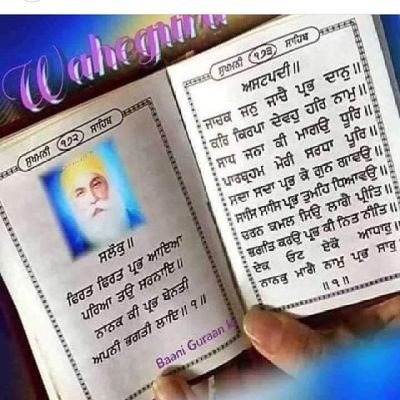 Waheguru
ਸੁਖਮਨੀ (੧੭੨) ਸਾਹਿਬ
ਸਲੋਕੁ॥
ਫਿਰਤ ਫਿਰਤ ਪ੍ਰਭ ਆਇਆ
ਪਰਿਆ ਤਉ ਸਰਨਾਇ॥
ਨਾਨਕ ਕੀ ਪ੍ਰਭ ਬੇਨਤੀ
ਅਪਨੀ ਭਗਤੀ ਲਾਇ॥੧॥
Baani Guraan
ਸੁਖਮਨੀ (੧੭੩) ਸਾਹਿਬ
ਅਸਟਪਦੀ॥
ਜਾਚਕ ਜਨੁ ਜਾਚੈ ਪ੍ਰਭ ਦਾਨੁ॥
ਕਰਿ ਕਿਰਪਾ ਦੇਵਹੁ ਹਰਿ ਨਾਮੁ॥
ਸਾਧ ਜਨਾ ਕੀ ਮਾਗਉ ਧੂਰਿ॥
ਪਾਰਬ੍ਰਹਮ ਮੇਰੀ ਸਰਧਾ ਪੂਰਿ॥
ਸਦਾ ਸਦਾ ਪ੍ਰਭ ਕੇ ਗੁਨ ਗਾਵਉ॥
ਸਾਸਿ ਸਾਸਿ ਪ੍ਰਭ ਤੁਮਹਿ ਧਿਆਵਉ॥
ਚਰਨ ਕਮਲ ਸਿਉ ਲਾਗੈ ਪ੍ਰੀਤਿ॥
ਭਗਤਿ ਕਰਉ ਪ੍ਰਭ ਕੀ ਨਿਤ ਨੀਤਿ॥
ਏਕ ਓਟ ਏਕੋ ਆਧਾਰੁ॥
ਨਾਨਕੁ ਮਾਗੈ ਨਾਮੁ ਪ੍ਰਭ ਸਾਰੁ॥
॥੧॥